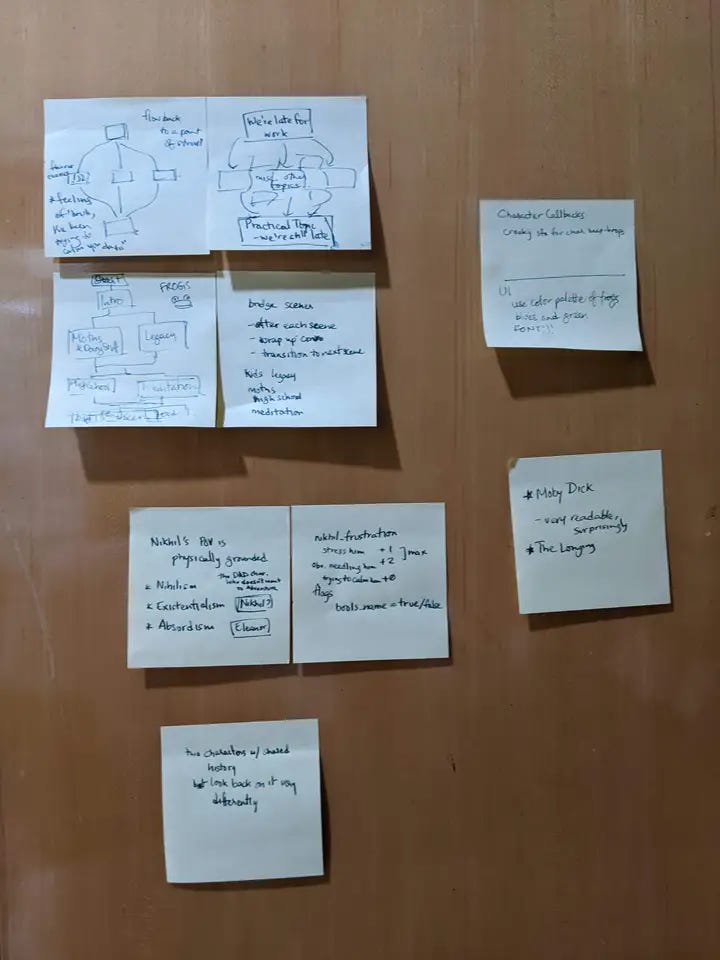 flow back
to a point
of stress?
* feeling
of "bruh,
I've been
trying to
calm you down"
We're late for
work
misc. other
topics
Practical Time
- we're still late
Start
Intro
FROGS
Moths
Legacy
Meditation
bridge scenes
- after each scene
- wrap up convo
- transition to next scene
kids legacy
moths
high school
meditation
Character Callbacks
UI
use color palette of frogs
blues and green
FONT??!
Nikhil's POV is
physically grounded
the D&D char.
who doesn't want
to adventure
* Nihilism
* Existentialism
Nikhil?
* Absurdism
Eleanor
nikhil_frustration
stress him +1
obv. needling him +2
max
trying to calm him +0
flags
bools_name = true/false
* Moby Dick
- very readable,
surprisingly
* The Longing
two characters w/ shared
history
but look back on it very
differently